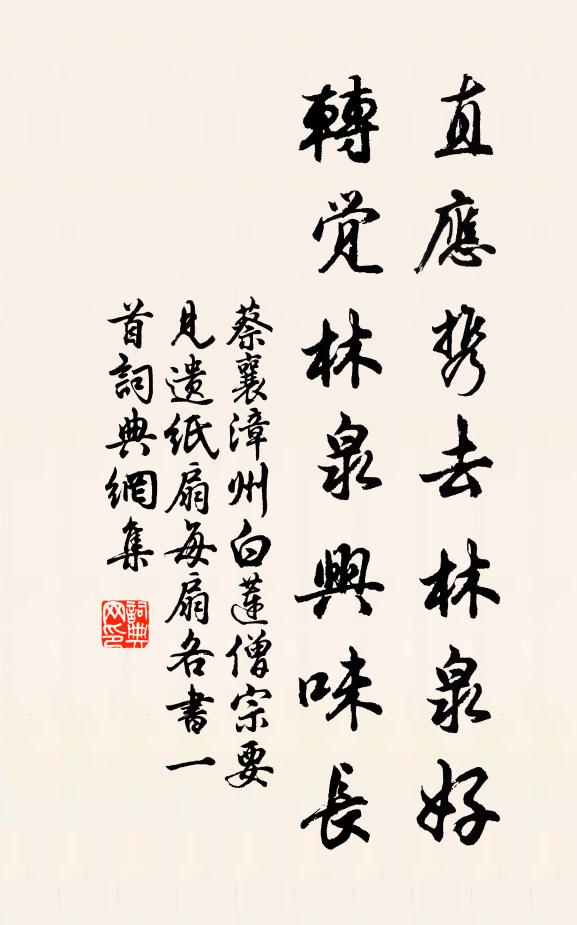 直應携去林泉好
轉覺林泉興味長
蔡襄漳州白蓮僧宗要
見遺紙扇每扇各書一
首詞典網集
詞典
网印